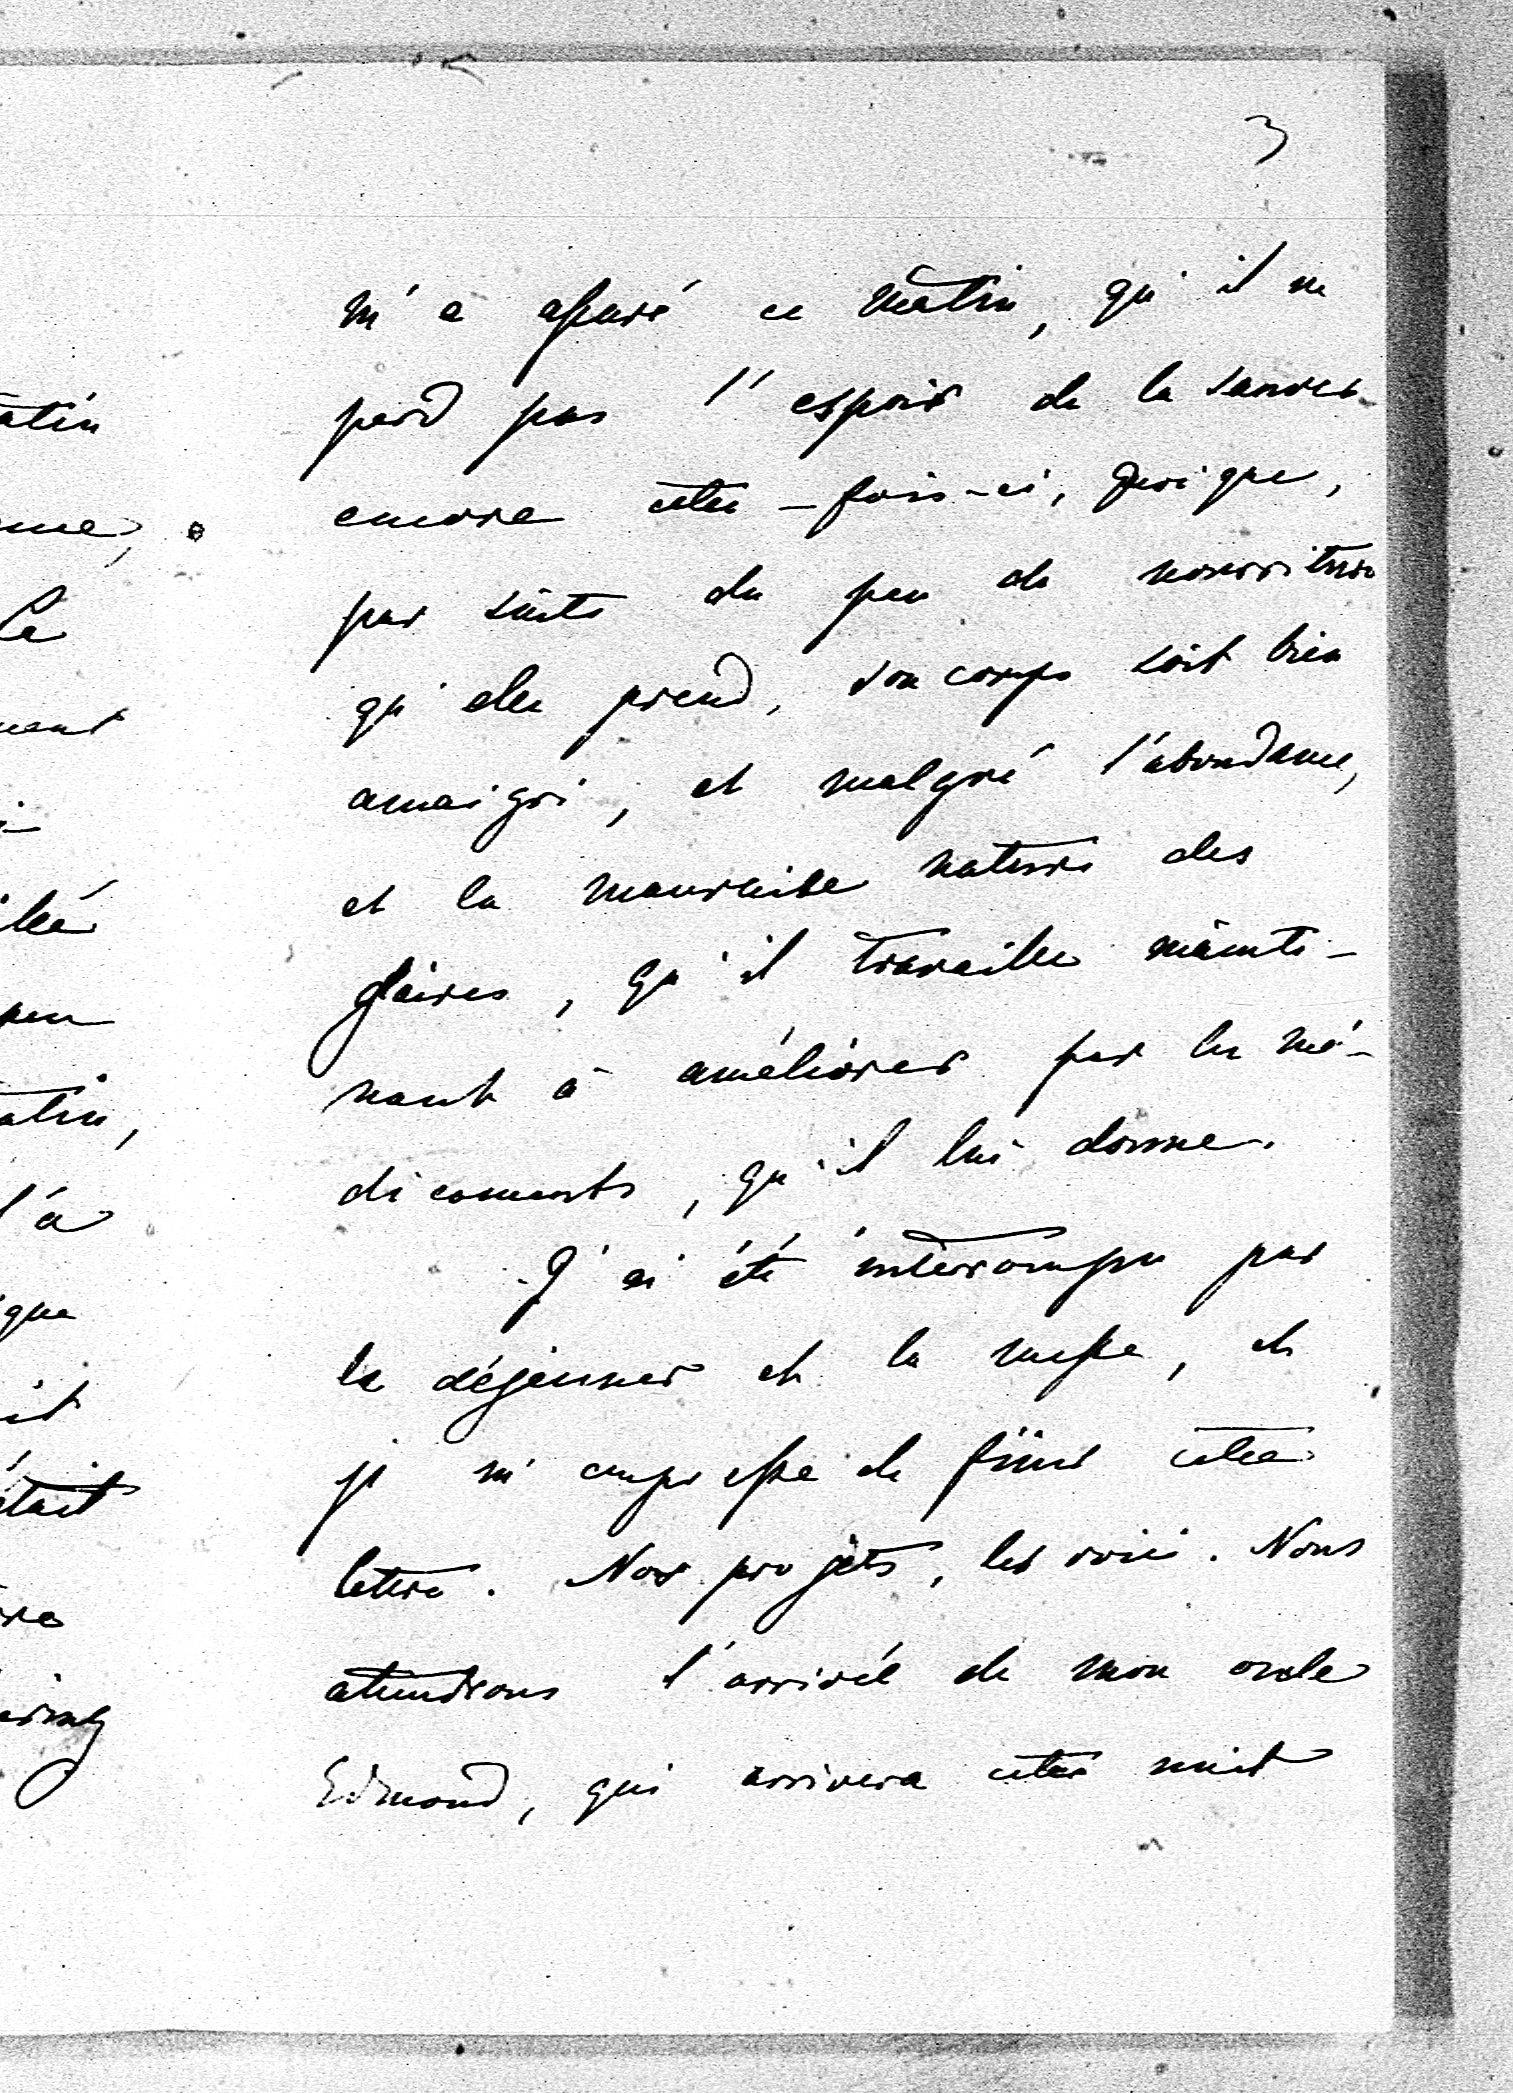 3
m'a assuré ce matin, qu'il ne
perd pas l'espoir de la sauver
encore cette-fois-ci, quoique,
par suite du peu de nourriture
qu'elle prend, son corps soit bien
amaigri, et malgré l'abondance,
et la mauvaise nature des
glaires, qu'il travaille mainte-
nant à améliorer par les mé-
dicaments, qu'il lui donne.
J'ai été interrompu par
le déjeuner et la messe, et
je m'empresse de finir cette
lettre. Nos projets, les voici. Nous
attendrons l'arrivée de mon oncle
Edmond, qui arrivera cette nuit